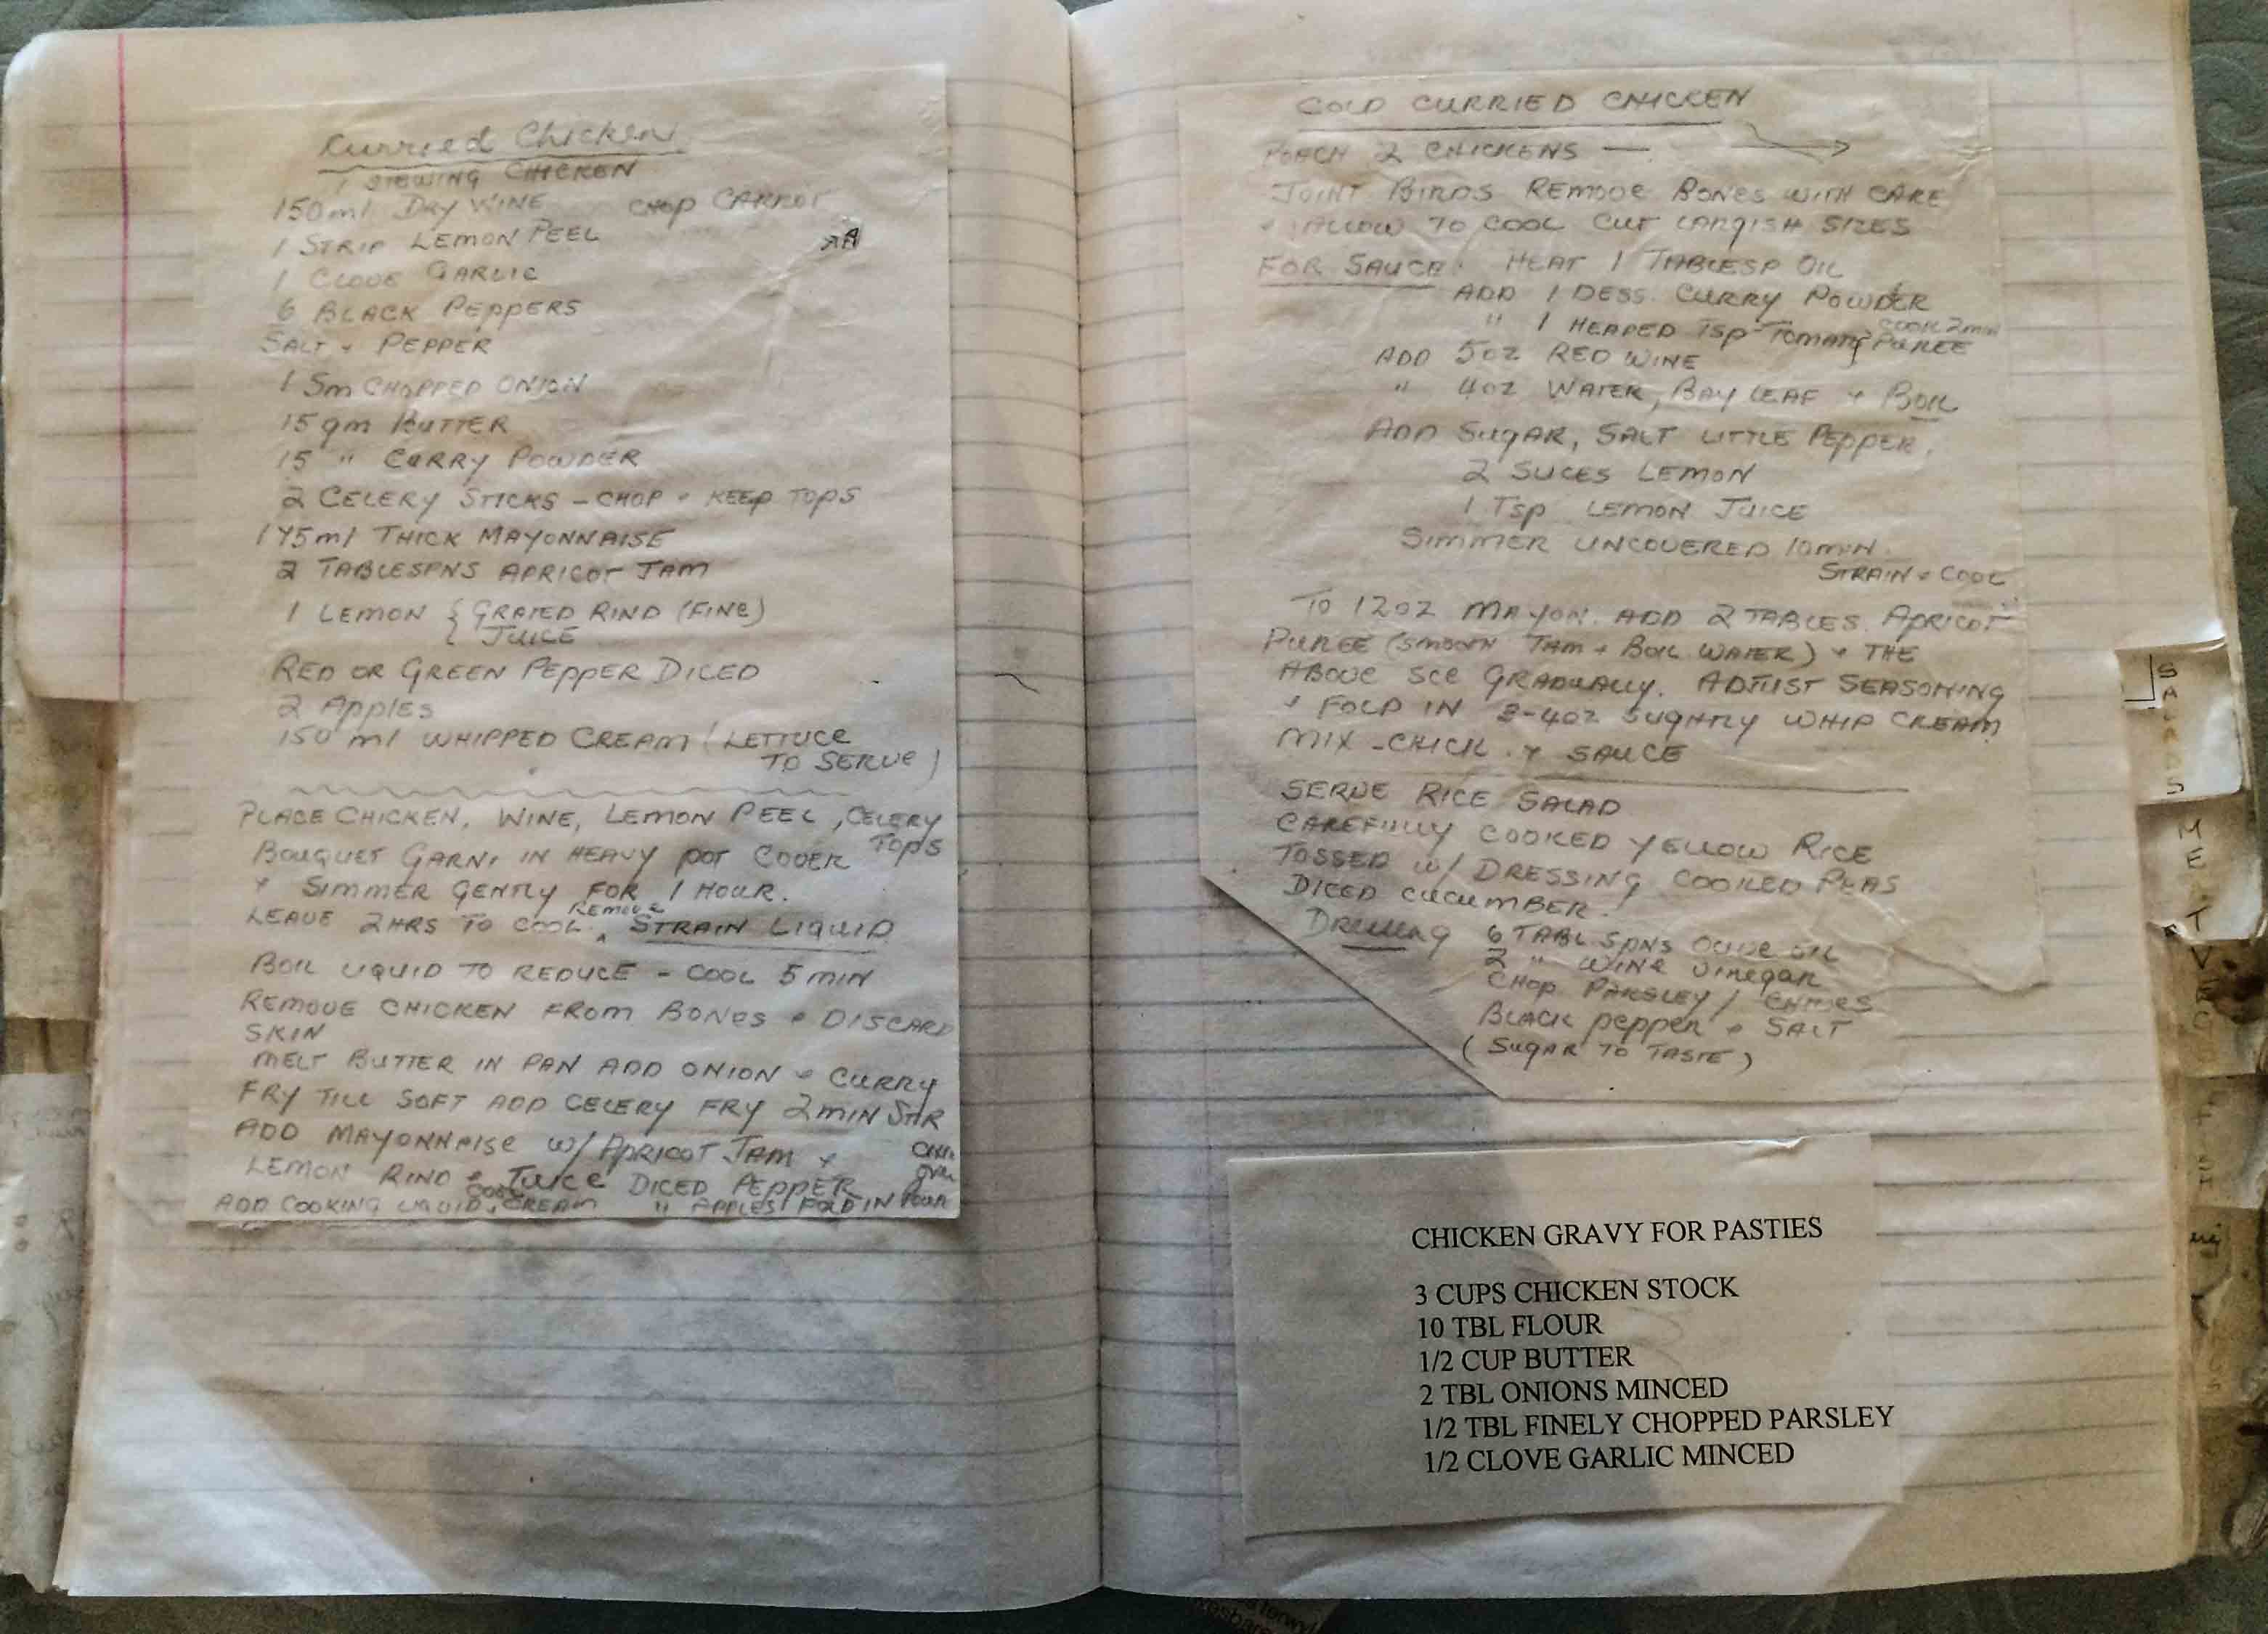 Curried Chicken
1 STEWING CHICKEN
150ml DRY WINE CHOP CARROT
1 STRIP LEMON PEEL
1 CLOVE GARLIC
6 BLACK PEPPERS
SALT + PEPPER
1 Sm CHOPPED ONION
15 gm BUTTER
15 " CURRY POWDER
2 CELERY STICKS – CHOP + KEEP TOPS
175ml THICK MAYONNAISE
2 TABLESPNS APRICOT JAM
1 LEMON { GRATED RIND (FINE)
{ JUICE
RED OR GREEN PEPPER DICED
2 Apples
150 ml WHIPPED CREAM (LETTUCE
TO SERVE)
PLACE CHICKEN, WINE, LEMON PEEL, CELERY
TOPS
BOUQUET GARNI IN HEAVY POT COVER
+ SIMMER GENTLY FOR 1 HOUR.
REMOVE
LEAVE 2HRS TO COOL, STRAIN LIQUID
BOIL LIQUID TO REDUCE – COOL 5 MIN
REMOVE CHICKEN FROM BONES + DISCARD
SKIN
MELT BUTTER IN PAN ADD ONION + CURRY
FRY TILL SOFT ADD CELERY FRY 2MIN STIR
ADD MAYONNAISE W/ APRICOT JAM +
LEMON RIND + JUICE DICED PEPPER
ADD COOKING LIQUID, CREAM " APPLES FOLD IN
COLD CURRIED CHICKEN
POACH 2 CHICKENS —
JOINT BIRDS REMOVE BONES WITH CARE
+ ALLOW TO COOL CUT LARGISH SIZES
FOR SAUCE: HEAT 1 TABLESP OIL
ADD 1 DESS. CURRY POWDER
COOK 2min
" 1 HEAPED Tsp TOMATO PUREE
ADD 5oz RED WINE
" 4oz WATER, BAY LEAF + BOIL
ADD SUGAR, SALT LITTLE PEPPER,
2 SLICES LEMON
1 Tsp LEMON JUICE
SIMMER UNCOVERED 10min.
STRAIN + COOL
TO 12oz MAYON. ADD 2 TABLES. APRICOT
PUREE (SMOOTH JAM + BOIL WATER) + THE
ABOVE SCE GRADUALLY. ADJUST SEASONING
+ FOLD IN 3-4oz SLIGHTLY WHIP CREAM
MIX – CHICK. + SAUCE
SERVE RICE SALAD
CAREFULLY COOKED YELLOW RICE
TOSSED W/ DRESSING COOKED PEAS
DICED CUCUMBER.
Dressing 6 TABL SPNS OLIVE OIL
2 " WINE Vinegar
CHOP PARSLEY / CHIVES
BLACK pepper + SALT
(SUGAR TO TASTE)
CHICKEN GRAVY FOR PASTIES
3 CUPS CHICKEN STOCK
10 TBL FLOUR
1/2 CUP BUTTER
2 TBL ONIONS MINCED
1/2 TBL FINELY CHOPPED PARSLEY
1/2 CLOVE GARLIC MINCED
SALADS